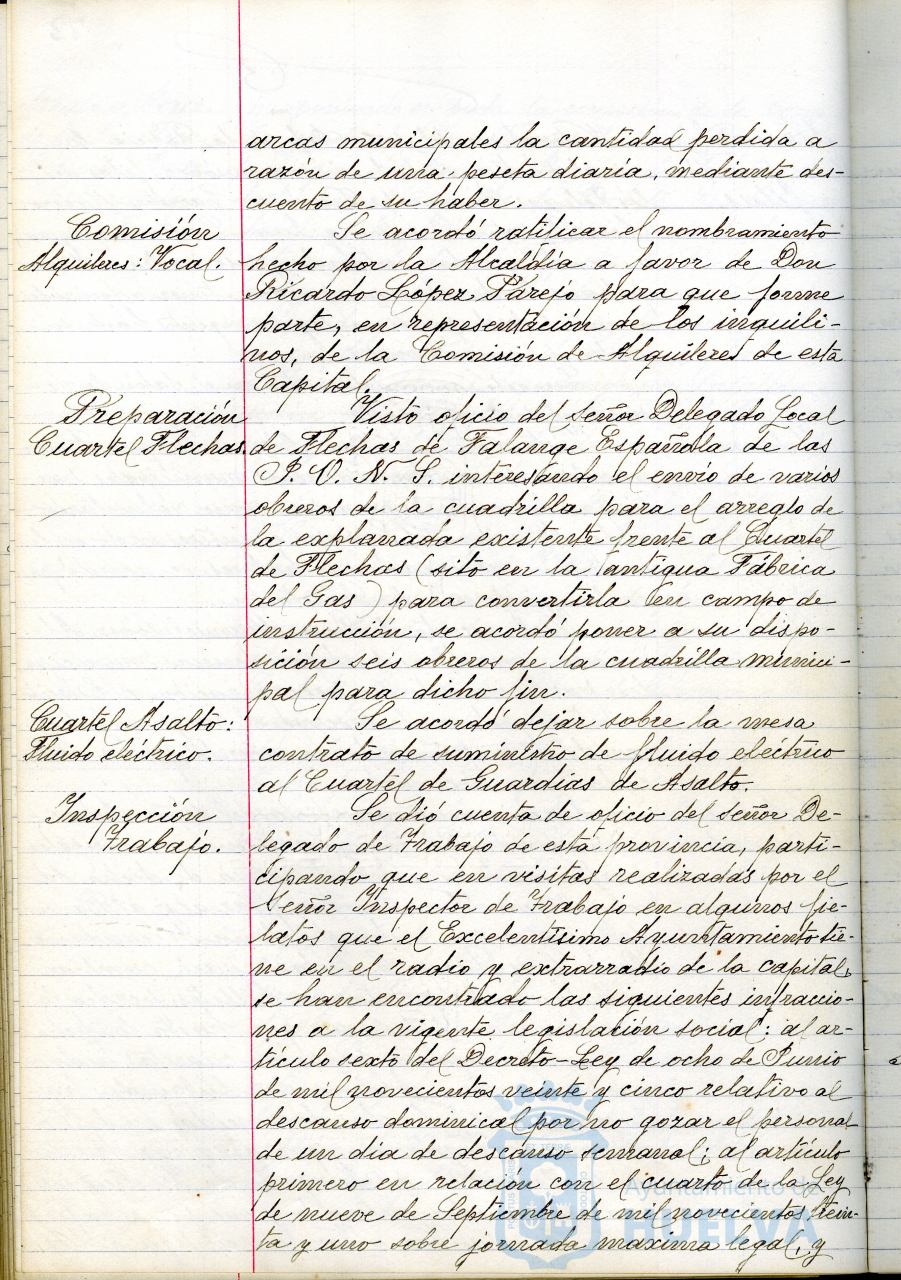 arcas municipales la cantidad perdida a
razón de una peseta diaria, mediante des-
cuento de su haber.
Comisión
Alquileres: Vocal.
Se acordó ratificar el nombramiento
hecho por la Alcaldía a favor de Don
Ricardo López Parejo para que forme
parte, en representación de los inquili-
nos, de la Comisión de Alquileres de esta
Capital.
Preparación
Cuartel Flechas.
Visto oficio del señor Delegado Local
de Flechas de Falange Española de las
J. O. N. S. interesando el envío de varios
obreros de la cuadrilla para el arreglo de
la explanada existente frente al Cuartel
de Flechas (sito en la antigua Fábrica
del Gas) para convertirla en campo de
instrucción, se acordó poner a su dispo-
sición seis obreros de la cuadrilla munici-
pal para dicho fin.
Cuartel Asalto:
Fluido eléctrico.
Se acordó dejar sobre la mesa
contrato de suministro de fluido eléctrico
al Cuartel de Guardias de Asalto.
Inspección
Trabajo.
Se dió cuenta de oficio del señor De-
legado de Trabajo de esta provincia, parti-
cipando que en visitas realizadas por el
Señor Inspector de Trabajo en algunos fie-
latos que el Excelentísimo Ayuntamiento tie-
ne en el radio y extrarradio de la capital,
se han encontrado las siguientes infraccio-
nes a la vigente legislación social: al ar-
tículo sexto del Decreto-Ley de ocho de Junio
de mil novecientos veinte y cinco relativo al
descanso dominical por no gozar el personal
de un día de descanso semanal; al artículo
primero en relación con el cuarto de la Ley
de nueve de Septiembre de mil novecientos trein-
ta y uno sobre jornada maxima legal, y
Ayuntamiento de
HUELVA